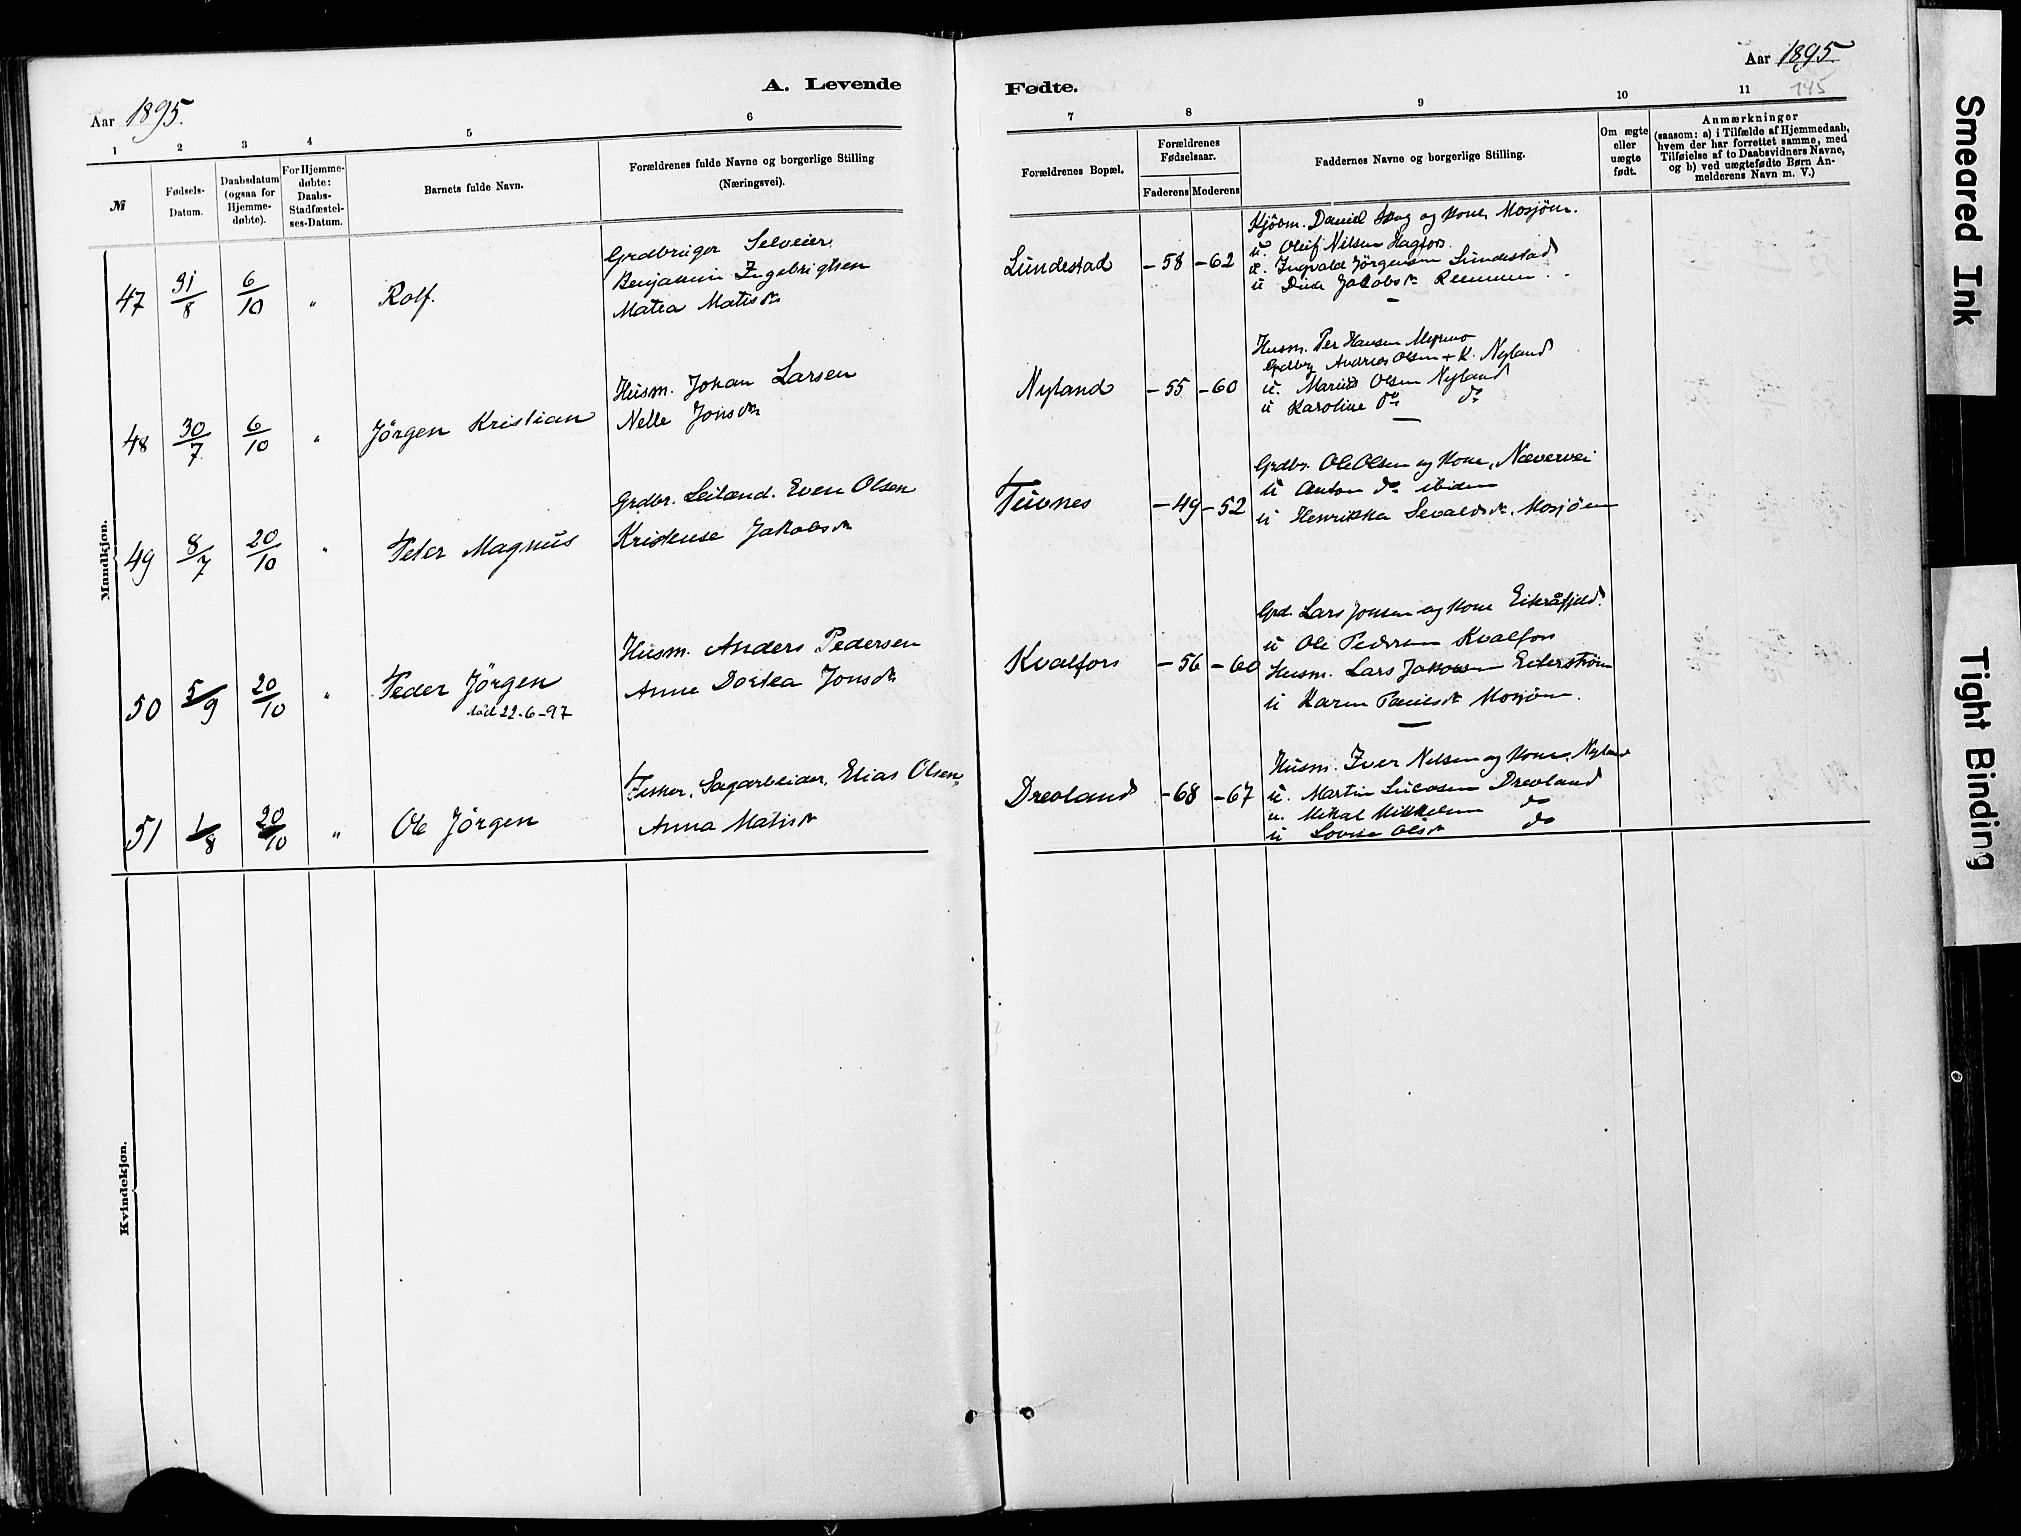 Aar 1895.
A. Levende
1 2 3 4 5 6
№
Fødsels-
Datum.
Daabsdatum
(ogsaa for
Hjemme-
døbte).
For Hjemme-
døbte:
Daabs-
Stadfæstel-
ses-Datum.
Barnets fulde Navn.
Forældrenes fulde Navne og borgerlige Stilling
(Næringsvei).
Mandkjøn.
47 31/8 6/10 " Rolf.
Grdbruger Selveier,
Benjamin Ingebrigtsen
Matea Matisdr
48 30/7 6/10 " Jörgen Kristian
Husm. Johan Larsen
Nelle Jonsdr
49 8/7 20/10 " Peter Magnus
Grdbr. Leilænd. Even Olsen
Jakobsdr
50 5/9 20/10 " Peder Jörgen
död 22-6-97
Husm. Anders Pedersen
Anne Dortea Jonsdr
51 1/8 20/10 " Ole Jörgen
Fisker, Sagarbeider, Elias Olsen,
Anna Matisdr
Kvindekjøn.
Fødte.
Aar 1895.
145
7 8 9 10 11
Forældrenes Bopæl.
Forældrenes
Fødselsaar.
Faderens Moderens
Faddernes Navne og borgerlige Stilling.
Om ægte
eller
uægte
født.
Anmærkninger
(saasom: a) i Tilfælde af Hjemmedaab,
hvem der har forrettet samme, med
Tilføielse af to Daabsvidners Navne,
og b) ved uægtefødte Børn An-
melderens Navn m. V.)
Lundestad - 58 - 62
Kjöbm. Daniel og Kone, Mosjöen.
u. Oleif Nilsen Hagfors
u. Ingvald Jörgensen Lundestad
u Jakobsdr Remmen
Nyland - 55 - 60
Husm. Per Hansen Myrmo
Grdbr Andreas Olsen + K. Nyland
u. Marius Olsen Nyland
u Karoline do do
Tuvnes - 49 - 52
Grdbr. Ole Olsen og Kone, Nævervei
u Anton do ibidem
u Henrikka Sevaldsdr. Mosjöen
Kvalfors - 56 - 60
Grd. Lars Jonsen og Kone Eiteråfjeld.
u Ole Pedersen Kvalfors
Husm. Lars Jakobsen Eiterström
u Karen Paulsdr Mosjöen.
Drevland - 68 - 67
Husm. Iver Nilsen og Kone, Nyland
u. Martin Drevland
u. Mikal Mikkelsen do
u Lovise Olsdr
Smeared Ink
Tight Binding